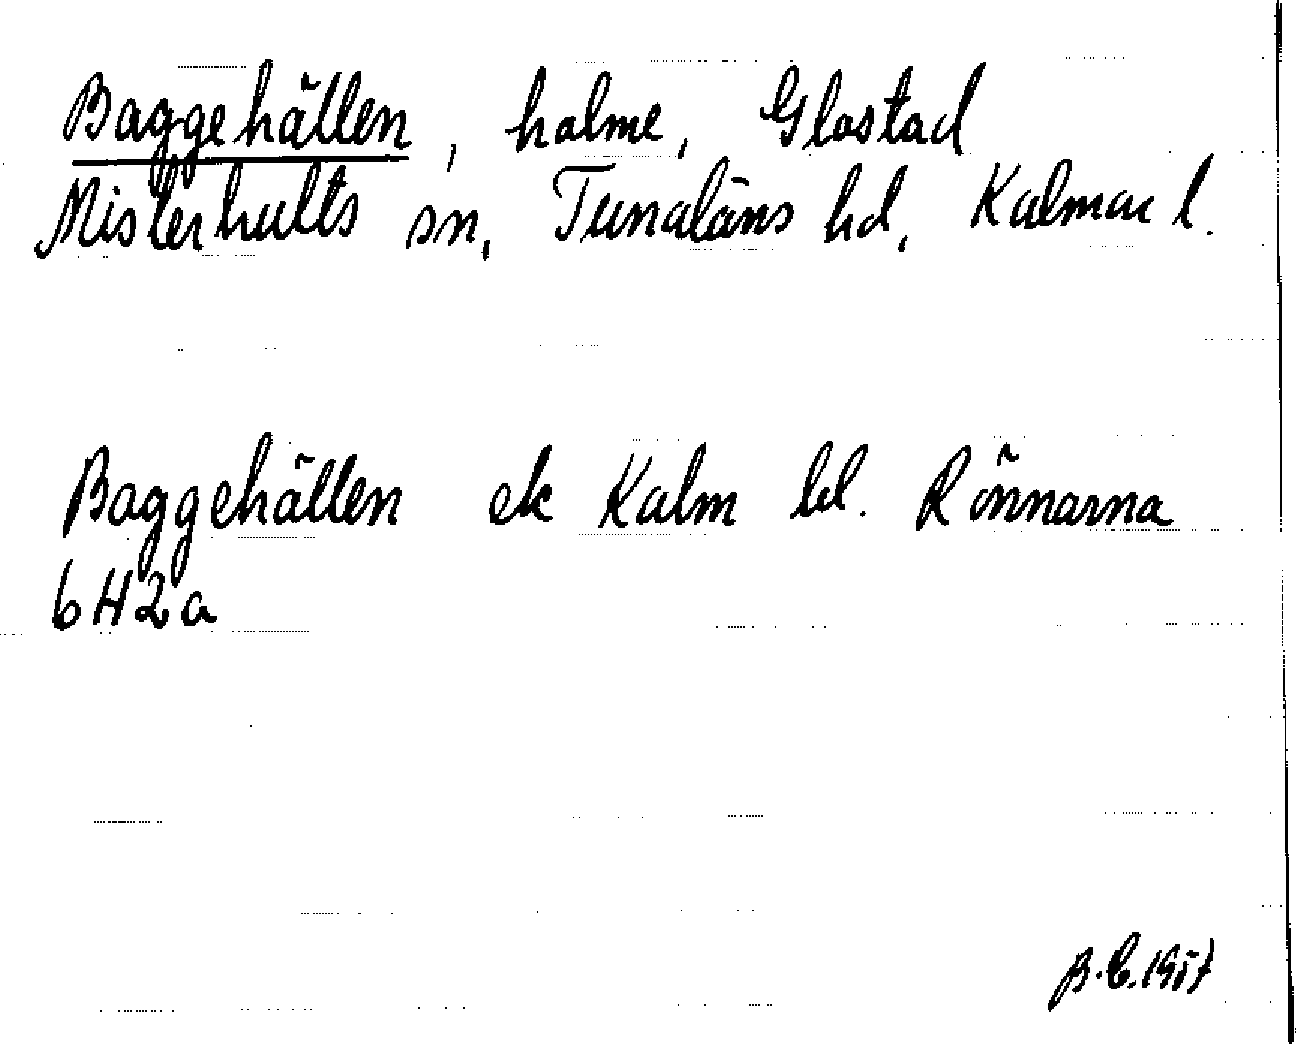 Baggehällen, holme, Glostad
Misterhults sn, Tunaläns hd, Kalmar l.
Baggehällen ek Kalm bl. Rönnarna
6H2a
B.E. 1957